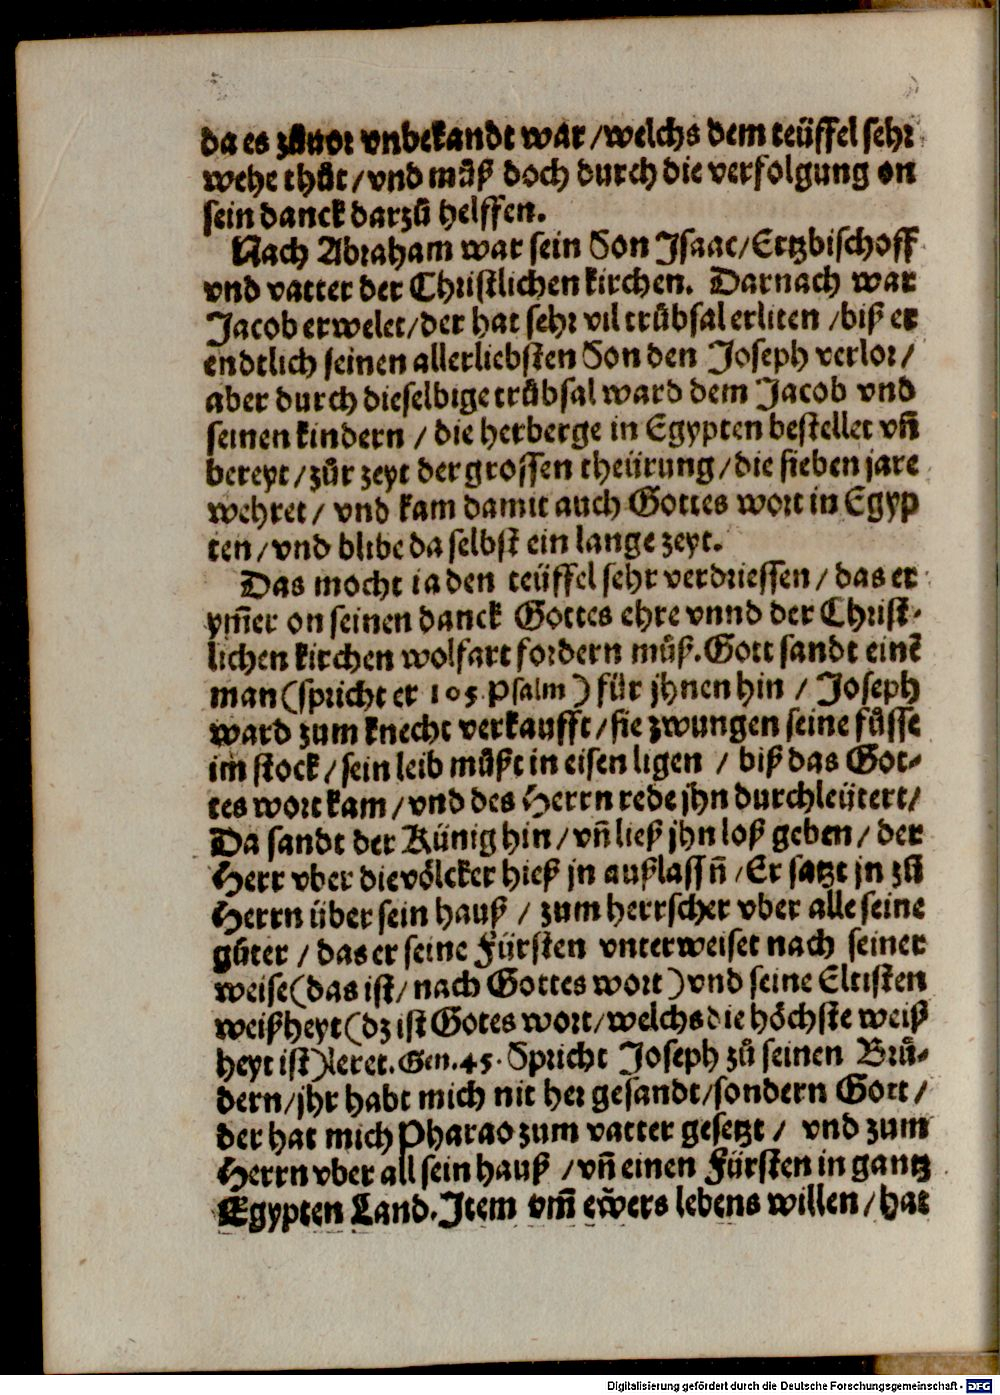 da es zůuor vnbekandt war /welchs dem teüffel sehr
wehe thůt /vnd můß doch durch die verfolgung on
sein danck darzů helffen.
Nach Abraham war sein Son Jsaac/Ertzbischoff
vnd vatter der Christlichen kirchen. Darnach war
Jacob erwelet/der hat sehr vil trůbsal erliten /biß er
endtlich seinen allerliebsten Son den Joseph verlor/
aber durch dieselbige trůbsal ward dem Jacob vnd
seinen kindern / die herberge in Egypten bestellet vñ
bereyt/zůr zeyt der grossen theürung/die sieben jare
wehret/ vnd kam damit auch Gottes wort in Egyp
ten/vnd blibe da selbst ein lange zeyt.
Das mocht ia den teüffel sehr verdriessen/das er
ym̃er on seinen danck Gottes ehre vnnd der Christ-
lichen kirchen wolfart fordern můß.Gott sandt einē
man(spricht er 105 Psalm) für jhnen hin / Joseph
ward zum knecht verkaufft/sie zwungen seine fůsse
im stock/sein leib můßt in eisen ligen / biß das Got-
tes wort kam/vnd des Herrn rede jhn durchleütert/
Da sandt der Künig hin/vñ ließ jhn loß geben/ der
Herr vber die völcker hieß jn außlassñ/Er satzt jn zů
Herrn über sein hauß / zum herrscher vber alle seine
gůter / das er seine Fürsten vnterweiset nach seiner
weise(das ist/nach Gottes wort)vnd seine Eltisten
weißheyt(dz ist Gotes wort/welchs die höchste weiß
heyt ist)leret.Gen.45. Spricht Joseph zů seinen Brů-
dern/jhr habt mich nit her gesandt/sondern Gott/
der hat mich Pharao zum vatter gesetzt/ vnd zum
Herrn vber all sein hauß /vñ einen Fürsten in gantz
Egypten Land.Jtem vm̃ ew̃ers lebens willen/hat
Digitalisierung gefördert durch die Deutsche Forschungsgemeinschaft - DFG